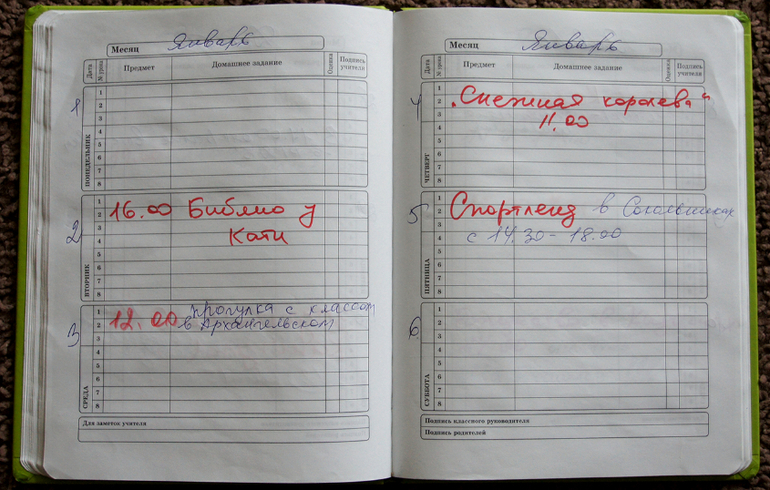 Месяц Январь
Дата № урока Предмет Домашнее задание Оценка Подпись учителя
1 ПОНЕДЕЛЬНИК
1
2
3
4
5
6
7
8
2 ВТОРНИК
1
2 16.00 Библио у
3 Кати
4
5
6
7
8
3 СРЕДА
1 прогулка с классом
2 12.00 в Архангельском
3
4
5
6
7
8
Для заметок учителя
Месяц Январь
Дата № урока Предмет Домашнее задание Оценка Подпись учителя
4 ЧЕТВЕРГ
1
2 „Снежная королева"
3 11.00
4
5
6
7
8
5 ПЯТНИЦА
1
2 Спортленд в Сокольниках
3
4 с 14.30 - 18.00
5
6
7
8
6 СУББОТА
1
2
3
4
5
6
7
8
Подпись классного руководителя
Подпись родителей